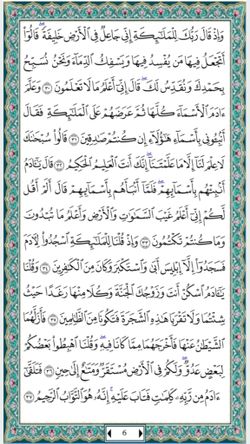 وَإِذْ قَالَ رَبُّكَ لِلْمَلَٰٓئِكَةِ إِنِّى جَاعِلٌ فِى ٱلْأَرْضِ خَلِيفَةً ۖ قَالُوٓا۟
أَتَجْعَلُ فِيهَا مَن يُفْسِدُ فِيهَا وَيَسْفِكُ ٱلدِّمَآءَ وَنَحْنُ نُسَبِّحُ
بِحَمْدِكَ وَنُقَدِّسُ لَكَ ۖ قَالَ إِنِّىٓ أَعْلَمُ مَا لَا تَعْلَمُونَ ٣٠ وَعَلَّمَ
ءَادَمَ ٱلْأَسْمَآءَ كُلَّهَا ثُمَّ عَرَضَهُمْ عَلَى ٱلْمَلَٰٓئِكَةِ فَقَالَ
أَنۢبِـُٔونِى بِأَسْمَآءِ هَٰٓؤُلَآءِ إِن كُنتُمْ صَٰدِقِينَ ٣١ قَالُوا۟ سُبْحَٰنَكَ
لَا عِلْمَ لَنَآ إِلَّا مَا عَلَّمْتَنَآ ۖ إِنَّكَ أَنتَ ٱلْعَلِيمُ ٱلْحَكِيمُ ٣٢ قَالَ يَٰٓـَٔادَمُ
أَنۢبِئْهُم بِأَسْمَآئِهِمْ ۖ فَلَمَّآ أَنۢبَأَهُم بِأَسْمَآئِهِمْ قَالَ أَلَمْ أَقُل
لَّكُمْ إِنِّىٓ أَعْلَمُ غَيْبَ ٱلسَّمَٰوَٰتِ وَٱلْأَرْضِ وَأَعْلَمُ مَا تُبْدُونَ
وَمَا كُنتُمْ تَكْتُمُونَ ٣٣ وَإِذْ قُلْنَا لِلْمَلَٰٓئِكَةِ ٱسْجُدُوا۟ لِـَٔادَمَ
فَسَجَدُوٓا۟ إِلَّآ إِبْلِيسَ أَبَىٰ وَٱسْتَكْبَرَ وَكَانَ مِنَ ٱلْكَٰفِرِينَ ٣٤ وَقُلْنَا
يَٰٓـَٔادَمُ ٱسْكُنْ أَنتَ وَزَوْجُكَ ٱلْجَنَّةَ وَكُلَا مِنْهَا رَغَدًا حَيْثُ
شِئْتُمَا وَلَا تَقْرَبَا هَٰذِهِ ٱلشَّجَرَةَ فَتَكُونَا مِنَ ٱلظَّٰلِمِينَ ٣٥ فَأَزَلَّهُمَا
ٱلشَّيْطَٰنُ عَنْهَا فَأَخْرَجَهُمَا مِمَّا كَانَا فِيهِ ۖ وَقُلْنَا ٱهْبِطُوا۟ بَعْضُكُمْ
لِبَعْضٍ عَدُوٌّ ۖ وَلَكُمْ فِى ٱلْأَرْضِ مُسْتَقَرٌّ وَمَتَٰعٌ إِلَىٰ حِينٍ ٣٦ فَتَلَقَّىٰٓ
ءَادَمُ مِن رَّبِّهِۦ كَلِمَٰتٍ فَتَابَ عَلَيْهِ ۚ إِنَّهُۥ هُوَ ٱلتَّوَّابُ ٱلرَّحِيمُ ٣٧
6